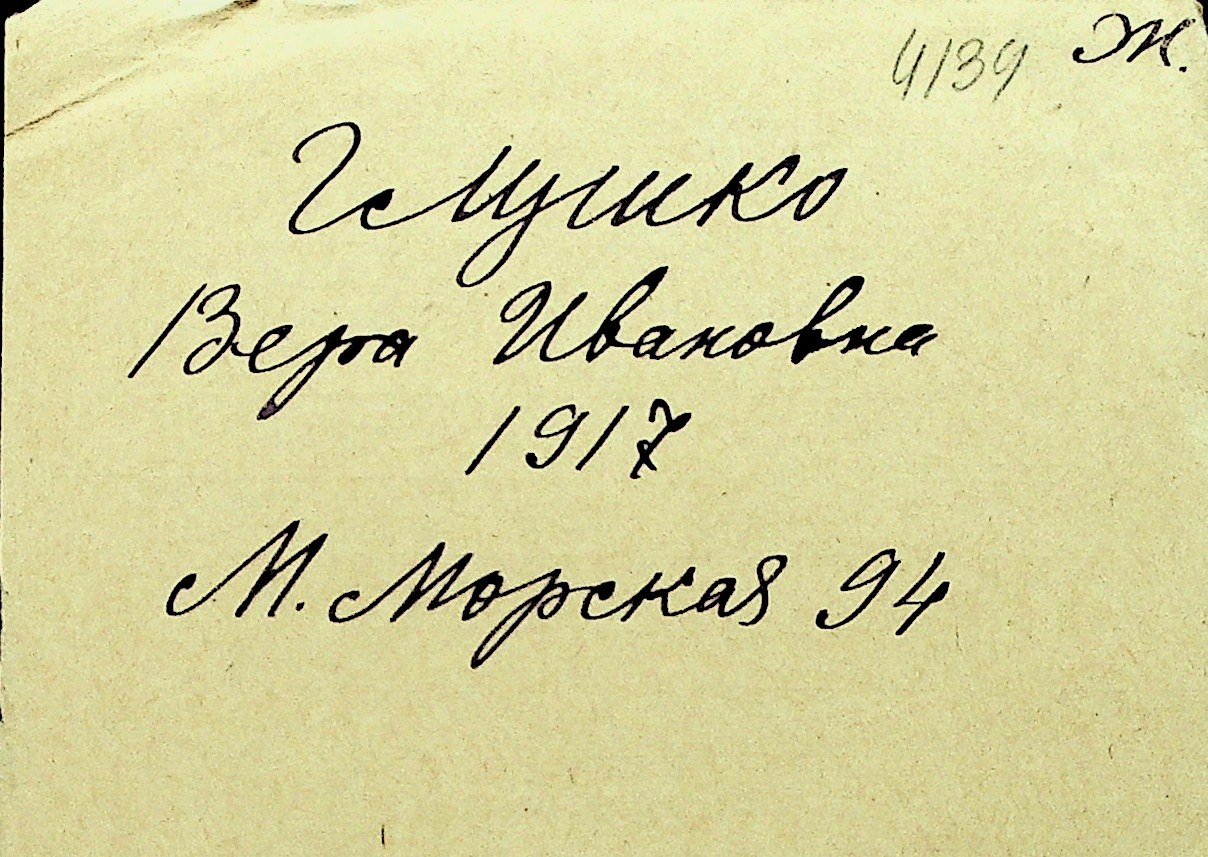 4139 Ж.
Глушко
Вера Ивановна
1917
М. Морская 94